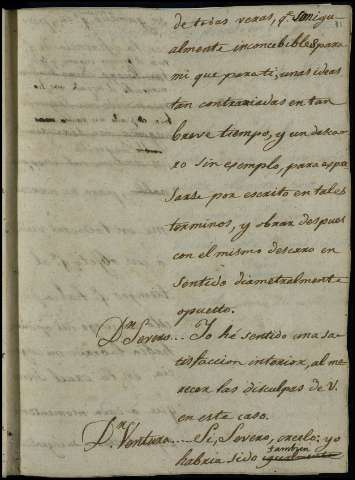 de todas veras, q.e son igu-
almente inconcebibles para
mi que para ti, unas ideas
tan contrariadas en tan
breve tiempo, y un desca-
ro sin exemplo, para expre
sarse por escrito en tales
terminos, y obrar despues
con el mismo descaro en
sentido diametralmente
opuesto.
D.n Severo.... Yo hé sentido una sa-
tisfaccion interior, al me
recer las disculpas de V.
en este caso.
D.n Ventura.... Si, Severo, creelo: yo
tambien
habria sido igualmente